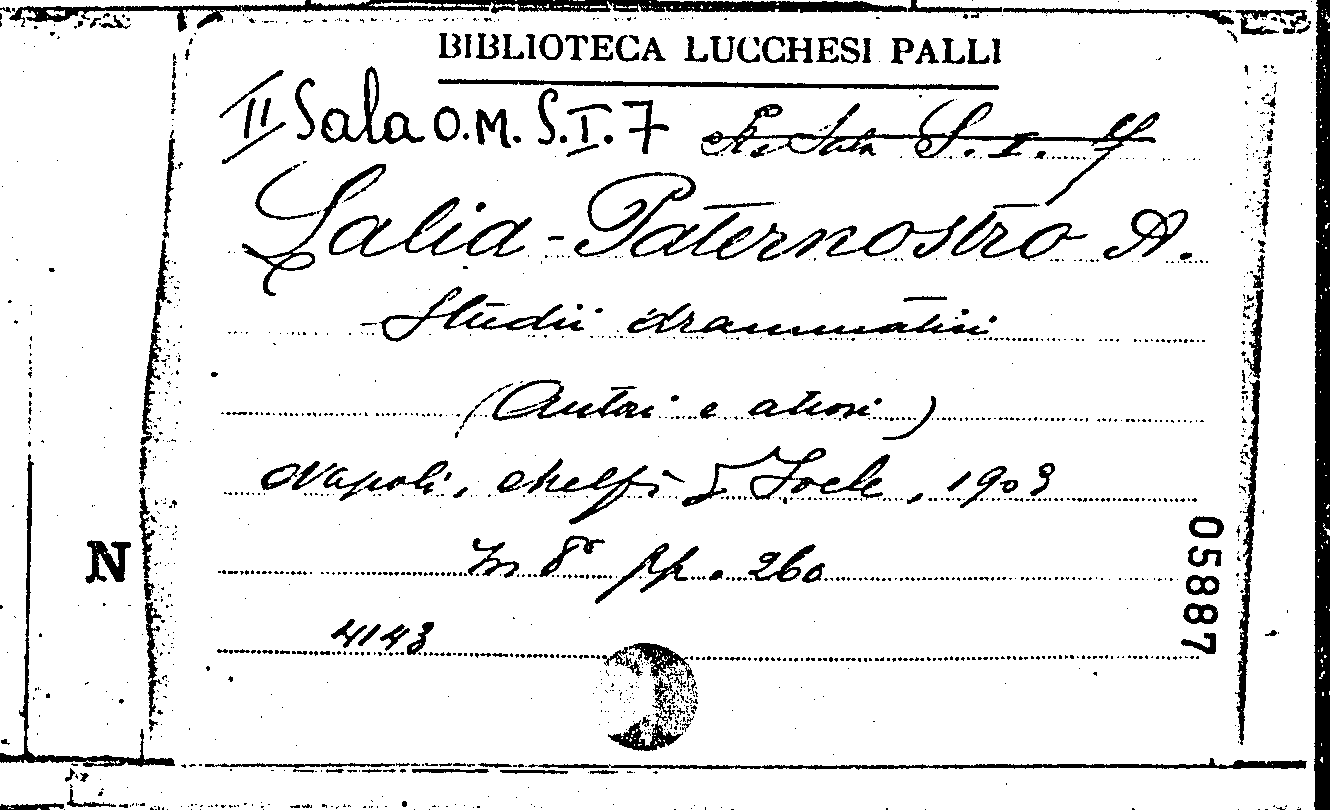 BIBLIOTECA LUCCHESI PALLI
II Sala O.M. S.I.7 Sala S. I. 7
Lalia-Paternostro A.
Studii drammatici
(Autori e attori)
Napoli, Melfi & Joele, 1903
In 8° pp. 260
4143
N
05887